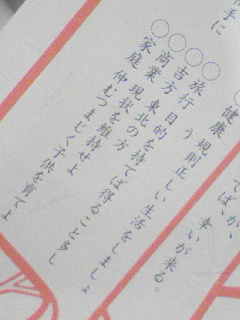 手に
ば、幸いが来る。
○健康 規則正しい生活をしましょ
う
○旅行 目的を持てば得ること多し
○吉方 東北の方
○商業 現状を維持せよ
○家庭 仲むつまじく子供を育てよ